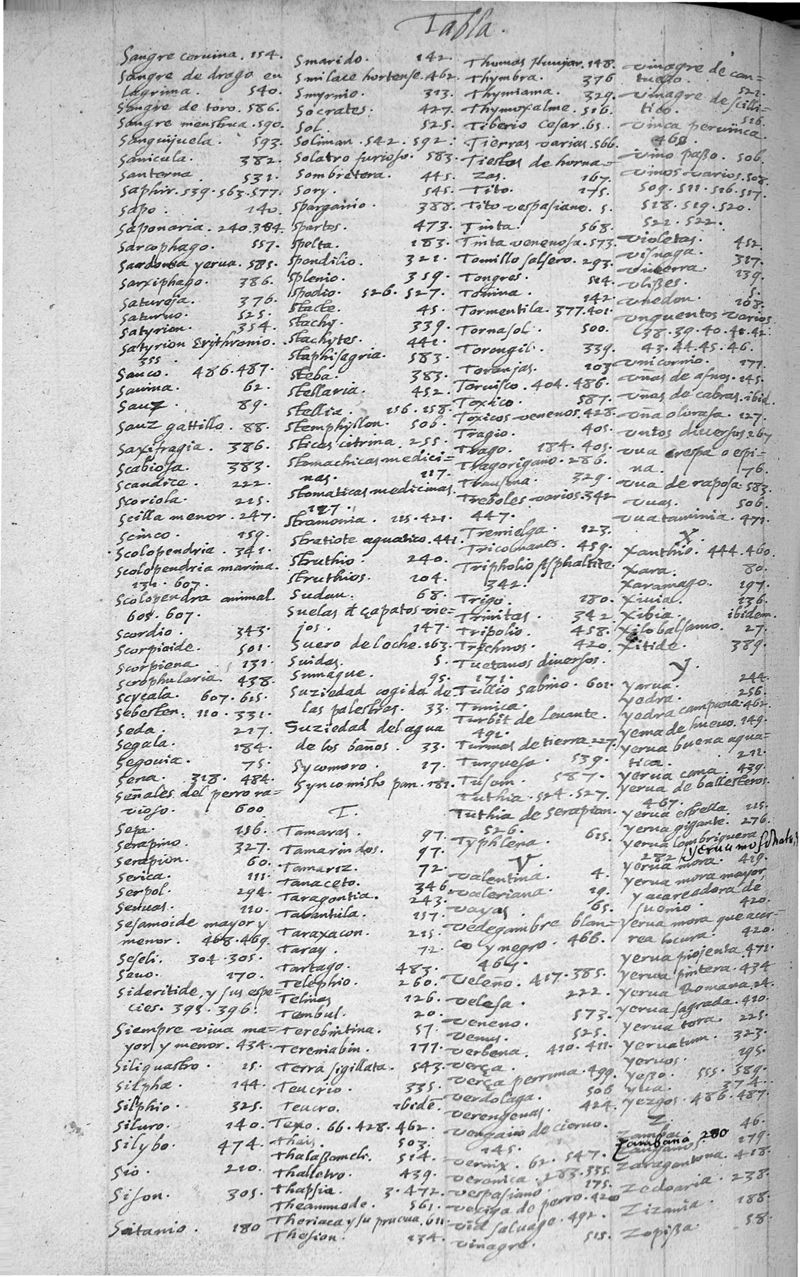 Tabla.
Sangre coruina. 154.
Sangre de drago en
lagrima. 540.
Sangre de toro. 586.
Sangre menstrua. 590.
Sanguijuela. 593.
Sanicula. 382
Santerna. 531.
Saphir. 539. 563. 577.
Sapo. 140.
Saponaria. 240. 384.
Sarcophago. 557.
yerua. 585.
Sarxiphago. 386.
Saturoja. 376.
Saturno. 525.
Satyrion. 354.
Satyrion Erythronio.
355.
Sauco. 486. 487.
Sauina. 62.
Sauz. 89.
Sauz gattillo. 88.
Saxifragia. 386.
Scabiosa. 383.
Scandice. 222.
Scoriola. 215.
Scilla menor. 247.
Scinco. 159.
Scolopendria. 341.
Scolopendria marina.
607.
Scolopendra animal.
607.
Scordio. 343
Scorpioide. 501.
Scorpiena. 131.
Scrophularia. 438.
Scytala. 607. 615.
Sebesten. 110. 331.
Seda. 217.
Segala. 184.
Segouia. 75.
Sena. 318. 484.
Señales del perro ra-
uioso. 600
156.
Serapino. 327.
Serapion. 60.
Serica. 111.
Serpol. 294.
110.
Sesamoide mayor y
menor. 468. 469.
Seseli. 304. 305.
Seuo. 170.
Sideritide, y sus espe-
cies. 395. 396.
Siempre viua ma-
yor y menor. 434.
Siliquastro. 15.
Silphæ. 144.
Silphio. 325.
Siluro. 140.
Silybo. 474.
Sio. 210.
Sison. 305.
180
Smarido. 142.
Smilace hortense. 462.
Smyrnio. 313.
Socrates. 427.
Sol. 525.
Soliman. 542. 592.
Solatro furioso. 583.
Sombrerera. 445.
Sory. 545.
Sparganio. 388.
Spartos. 473.
Spelta. 183.
Spondilio. 321.
Splenio. 359.
Spodio. 526. 527.
Stacte. 45.
Stachy. 339.
Stachytes. 441.
Staphisagria. 583.
Steba. 383.
Stellaria. 452.
Stellia. 156. 158.
Stemphyllon. 506.
Stices citrina. 255.
Stomachicas medici-
nas. 117.
Stomaticas medicinas.
127.
Stramonia. 421.
Stratiote aquatico. 441.
Struthio. 240.
Struthios. 104.
Sudan. 68.
Suelas de çapatos vie-
jos. 147.
Suero de leche. 163.
Suidas. 5.
Sumaque. 95.
Suziedad cogida de
las palestras. 33.
Suziedad del agua
de los baños. 33.
Sycomoro. 17.
Syncomisto pan. 181.
T.
Tamaras. 97.
Tamarindos. 97.
Tamariz. 72.
Tanaceto. 346
Taragontia. 243
Tarantula. 157.
Taraxacon. 215.
Taray. 72.
Tartago. 483.
Telephio. 260.
Telinas 126.
Tembul. 20.
Terebintina. 57.
Tereniabin. 177.
Terra sigillata. 543.
Teucrio. 335.
Teucro. ibidē.
Texo. 66. 428. 462.
Thais. 503.
Thalassomeli. 514.
Thalietro. 439.
Thapsia. 3. 472.
Theammede. 561.
Theriaca y su prueua. 611.
Thesion. 134.
Thomas 148.
Thymbra. 376
Thymiama. 329.
Thymoxalme. 516.
Tiberio Cesar. 65.
Tierras varias. 566.
Tiestos de horna-
zas. 167.
Tito. 175.
Tito vespasiano. 5.
Tinta. 568.
Tinta venenosa. 573.
Tomillo salsero. 293.
Tongres. 514.
142
Tormentila. 377. 401.
Tornasol. 500.
Torongil. 339.
Toronjas. 103.
Toruisco. 404. 486.
Toxico. 587.
Toxicos venenos. 428.
Tragio. 405.
Trago. 184. 405.
Tragorigano. 286.
329.
Treboles varios. 342
447.
Tremielga. 123.
Tricomanes. 459.
Tripholio Asphaltite.
342.
Trigo. 180.
Trinitas. 342
Tripolio. 458.
Trychnos. 420.
Tuetanos diuersos.
171.
Tullio sabino. 601.
Tunica.
Turbit de Leuante.
491.
Turmas de tierra. 227.
Turquesa. 539.
587.
Tuthia. 524. 527.
Tuthia de Serapion.
526.
Typhlena. 615.
V
Valentina. 4.
Valeriana. 19.
Vayas. 65.
Vedegambre blan-
co y negro. 466.
467.
Veleno. 417. 385.
Velesa. 222.
Veneno. 573.
Venus. 525.
Verbena. 410. 411.
Verça.
Verça perruna. 499.
Verdolaga. 506
Verengenas. 424.
Vengaino de cieruo.
145.
Vernix. 62. 547.
Veronica. 283. 335.
Vespasiano. 175.
Vexiga de perro. 420
Vid saluage. 492.
Vinagre. 515.
Vinagre de can-
tueso. 521.
Vinagre de scilli-
tico. 516.
Vinca peruinca.
460.
Vino passo. 506.
Vinos varios. 508.
509. 511. 516. 517.
518. 519. 520.
521. 522.
Violetas. 452.
Visnaga. 317.
Viuerra. 139.
Vlißes. 5.
Vnedon. 103.
Vnguentos varios
38. 39. 40. 41. 42.
43. 44. 45. 46.
Vnicornio. 177.
Vñas de asnos. 145.
Vñas de cabras. ibid.
Vña olorosa. 127.
Vntos diuersos. 267
Vua crespa o espi-
na. 76.
Vua de raposa. 583.
Vuas. 506.
Vua taminia. 471.
X
Xanthio. 444. 460.
Xara. 80.
Xaramago. 197.
136.
Xibia. ibidem.
Xilobalsamo. 27.
389.
Y
Yerua. 244.
Yedra. 256.
Yedra campana. 462.
Yema de hueuo. 149.
Yerua buena aqua-
tica. 211.
Yerua cana. 439.
Yerua de ballesteros.
467.
Yerua estrella. 115.
Yerua gigante. 276.
Yerua lombriguera.
282.
Yerua mora. 419.
Yerua mora mayor
y acarreadora de
sueño. 420.
Yerua mora que acar-
rea locura. 420.
Yerua piojenta. 471.
Yerua puntera. 434
Yerua Romana. 24.
Yerua sagrada. 410.
Yerua tora. 225.
Yeruatum. 323.
Yeruos. 195.
Yesso. 555. 589.
Yua. 374.
Yezgos. 486. 487.
Z
46.
Zampana 280
179.
Zaragantona. 418.
Zedoaria. 238.
Zizania. 188.
Zopissa. 58.